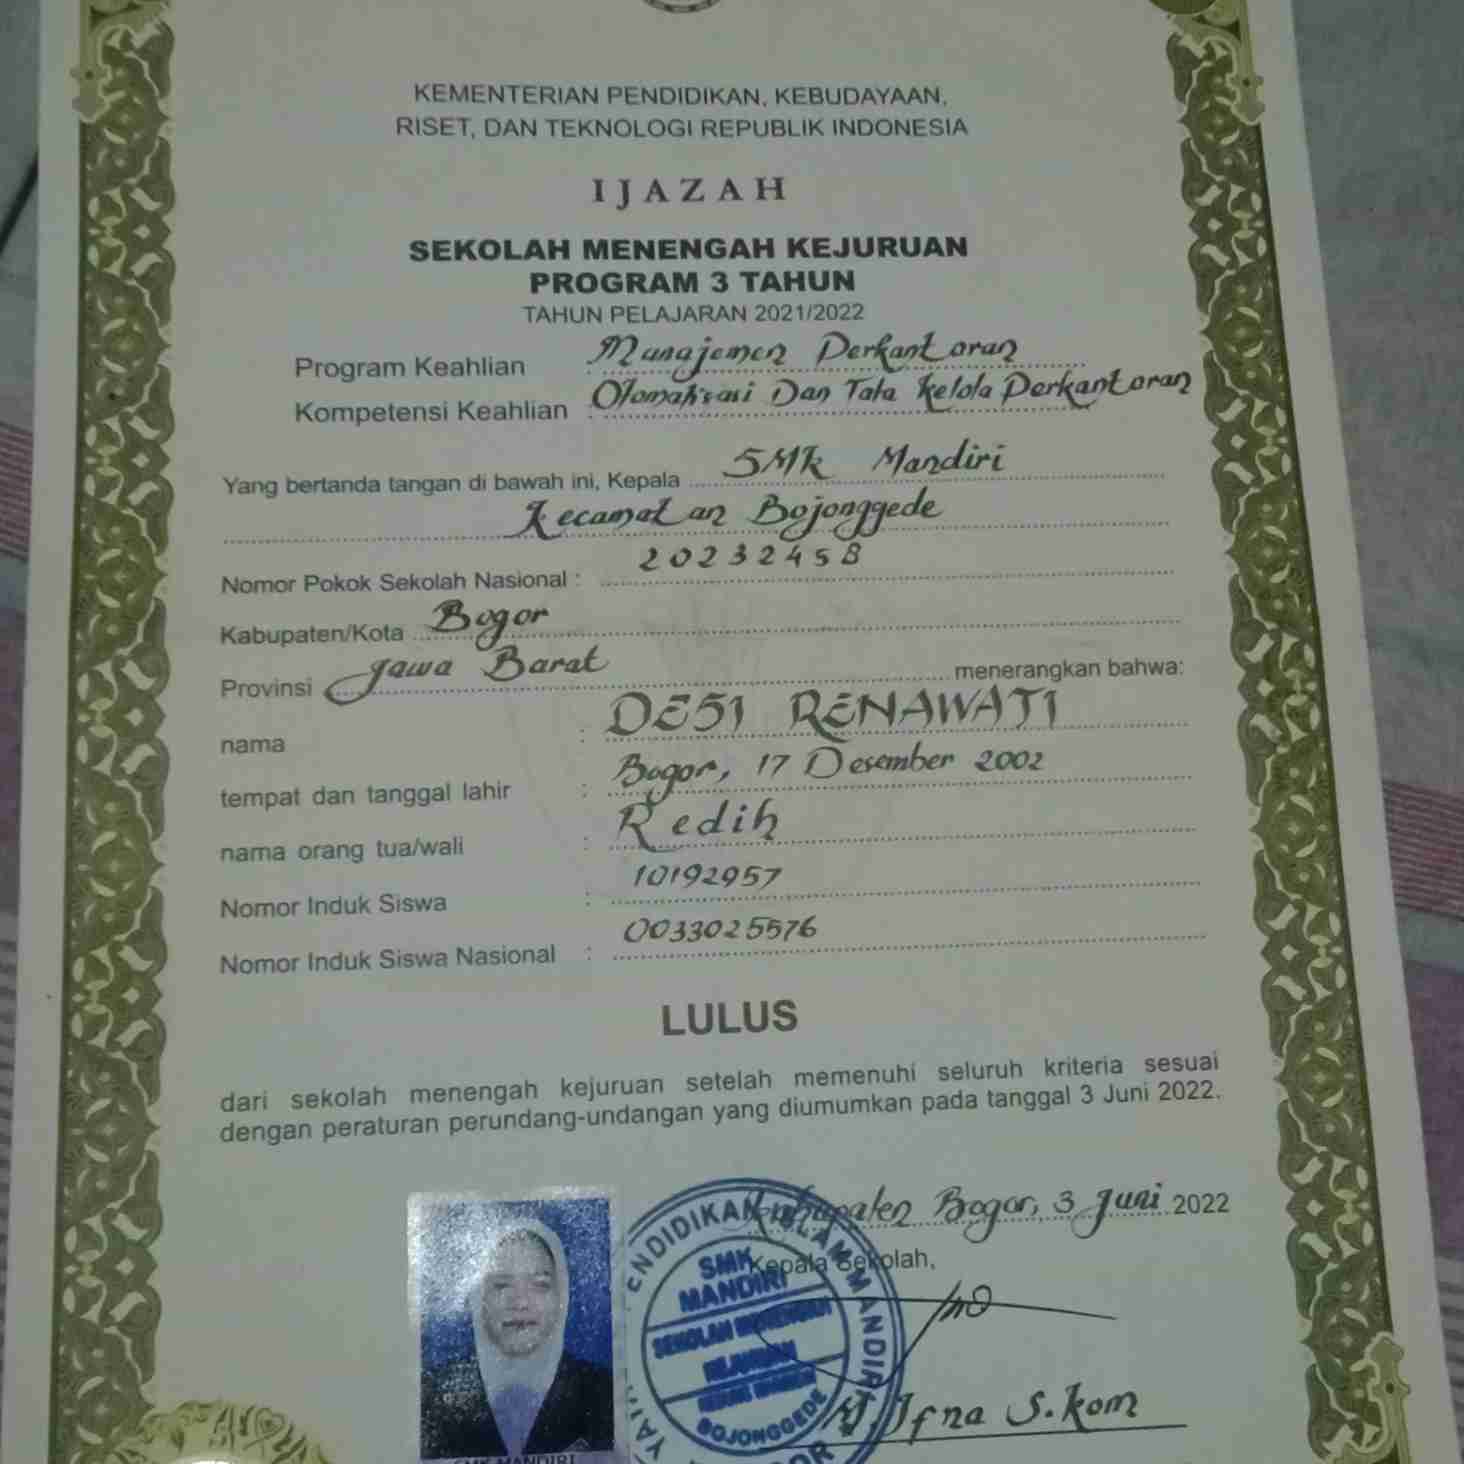 KEMENTERIAN PENDIDIKAN, KEBUDAYAAN,
RISET, DAN TEKNOLOGI REPUBLIK INDONESIA
IJAZAH
SEKOLAH MENENGAH KEJURUAN
PROGRAM 3 TAHUN
TAHUN PELAJARAN 2021/2022
Program Keahlian : Manajemen Perkantoran
Kompetensi Keahlian : Otomatisasi Dan Tata Kelola Perkantoran
Yang bertanda tangan di bawah ini, Kepala SMK Mandiri
Kecamatan Bojonggede
Nomor Pokok Sekolah Nasional : 20232458
Kabupaten/Kota Bogor
Provinsi Jawa Barat menerangkan bahwa:
nama : DESI RENAWATI
tempat dan tanggal lahir : Bogor, 17 Desember 2002
nama orang tua/wali : Redih
Nomor Induk Siswa : 10192957
Nomor Induk Siswa Nasional : 0033025576
LULUS
dari sekolah menengah kejuruan setelah memenuhi seluruh kriteria sesuai
dengan peraturan perundang-undangan yang diumumkan pada tanggal 3 Juni 2022.
Kabupaten Bogor, 3 Juni 2022
Kepala Sekolah,
PENDIDIKAN ISLAM MANDIRI
SMK
MANDIRI
SEKOLAH MENENGAH
KEJURUAN
BOJONGGEDE
Ifna S.kom
SMK MANDIRI